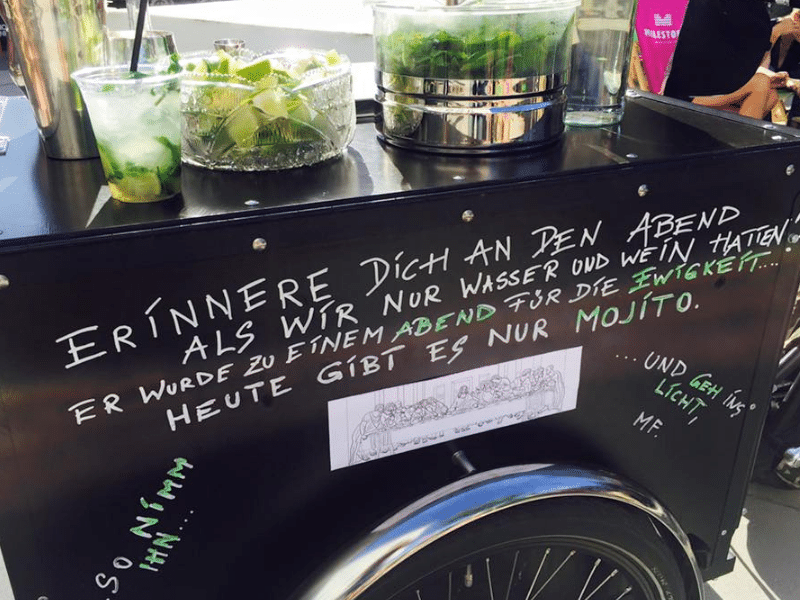 ERINNERE DICH AN DEN ABEND
ALS WIR NUR WASSER UND WEIN HATTEN!
ER WURDE ZU EINEM ABEND FÜR DIE EWIGKEIT....
HEUTE GIBT ES NUR MOJITO.
...UND GEH INS
LICHT,
MF.
SO NIMM
IHN....